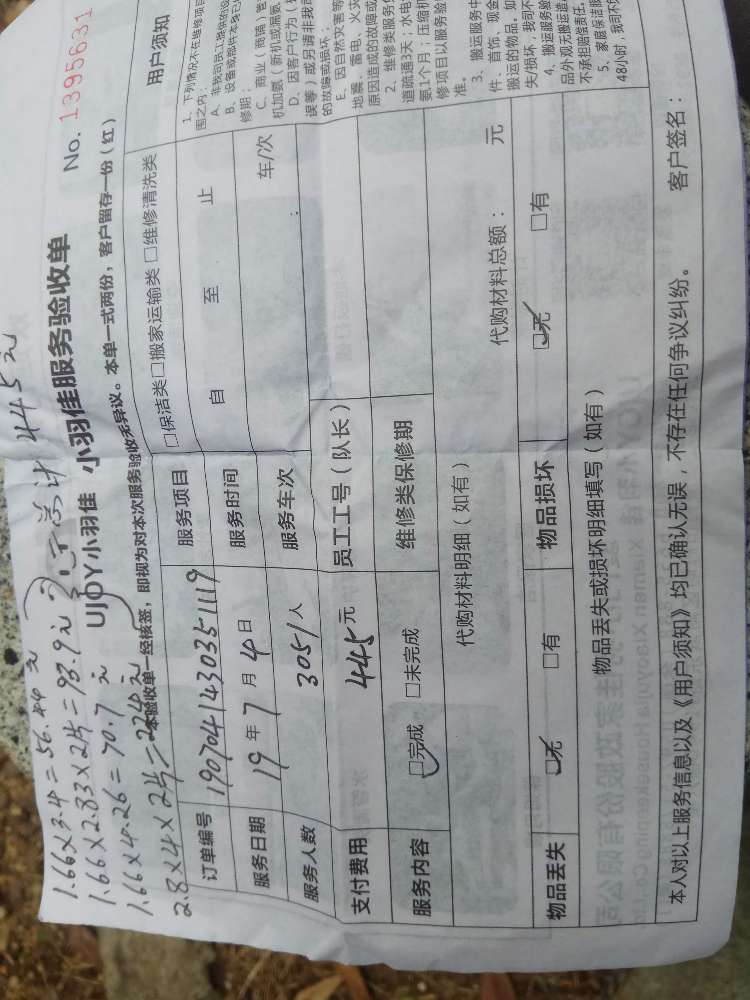 1.66×3.4=56.44元
1.66×2.83×2片=93.9元 总计445元
1.66×4.26=70.7元
2.8×4×2片=224元
UJOY小羽佳 小羽佳服务验收单 No. 1395631
本验收单一经核签，即视为对本次服务验收无异议。本单一式两份，客户留存一份（红）
订单编号 190704143035 1119 服务项目 □保洁类□搬家运输类 □维修清洗类
服务日期 19年7月4日 服务时间 自 至 止
服务人数 3051人 服务车次 车/次
支付费用 445元 员工工号（队长）
服务内容 ☑完成 □未完成 维修类保修期
代购材料明细（如有） 代购材料总额： 元
物品丢失 ☑无 □有 物品损坏 ☑无 □有
物品丢失或损坏明细填写（如有）
本人对以上服务信息以及《用户须知》均已确认无误，不存在任何争议纠纷。 客户签名：
用户须知
1、下列情况不在维修项目
围之内：
A、非我司员工提供的设
B、设备或部件本身已
修期；
C、商业（商铺）
机加氨（新机或漏氨
D、因客户行为（
误等）或另请非我司
的故障或损坏；
E、因自然灾害等
地震、雷电、火灾
原因造成的故障或
2、维修类服务
道疏通3天；水电
氨1个月；压缩机
修项目以服务验
准。
3、搬运服务中
件、首饰、现金
搬运的物品，如
失/损坏，我司不
4、搬运服务验
品外观无搬运造
不承担赔偿责任。
5、家庭保洁服
48小时；我司不